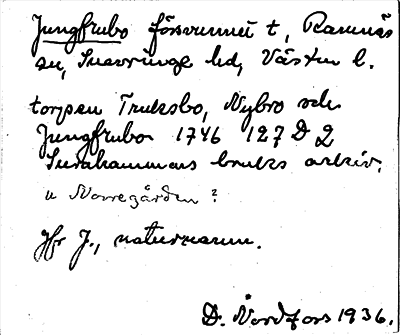 Jungfrubo försvunnet t, Ramnäs
sn, Snevringe hd, Västm l.
torpen Truksbo, Nybro och
Jungfrubo 1746 127 D 2
Surahammars bruks arkiv.
u Norregården?
Jfr J., naturnamn.
D. Nordfors 1936.